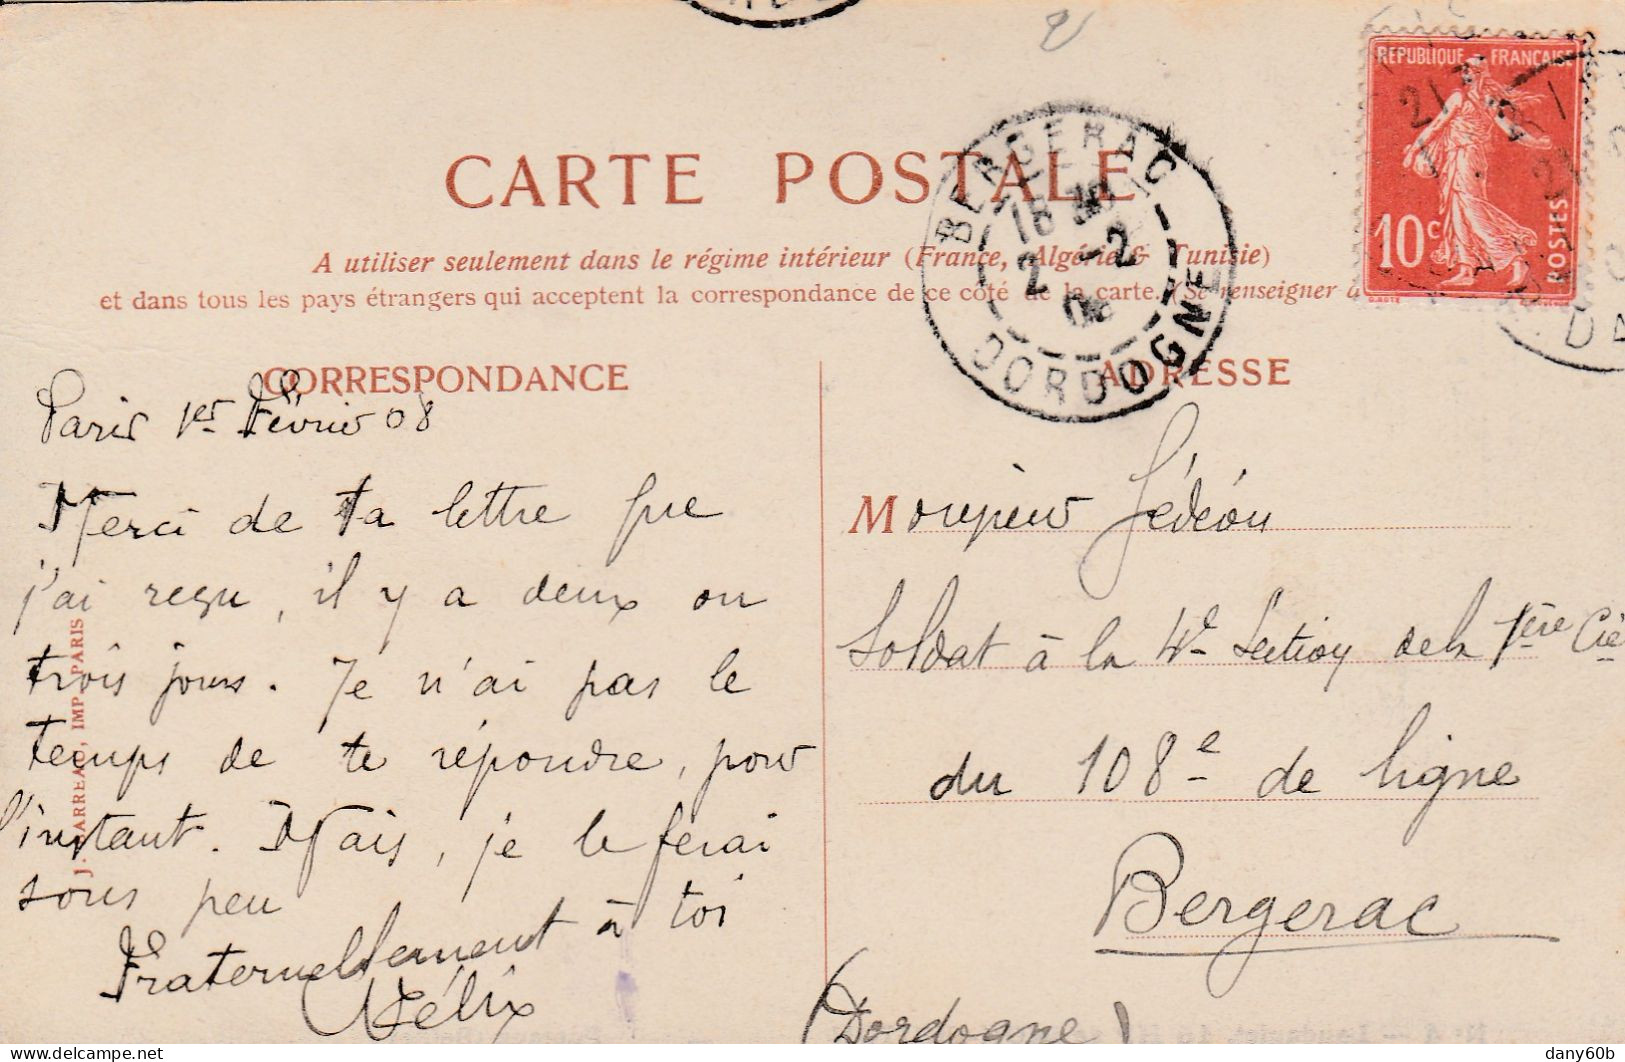 REPUBLIQUE FRANÇAISE
10c
POSTES
BERGERAC
18 30
2 -2
08
DORDOGNE
CARTE POSTALE
A utiliser seulement dans le régime intérieur (France, Algérie & Tunisie)
et dans tous les pays étrangers qui acceptent la correspondance de ce côté de la carte. (Se renseigner à
CORRESPONDANCE
Paris 1er Février 08
Merci de ta lettre que
j'ai reçu, il y a deux ou
trois jours. Je n'ai pas le
temps de te répondre, pour
l'instant. Mais, je le ferai
sous peu
Fraternellement à toi
Félix
J. SARREAU, IMP. PARIS
ADRESSE
Monsieur Gédéon
Soldat à la 4e Section de la 1ère Cie
du 108e de ligne
Bergerac
(Dordogne)
delcampe.net
dany60b